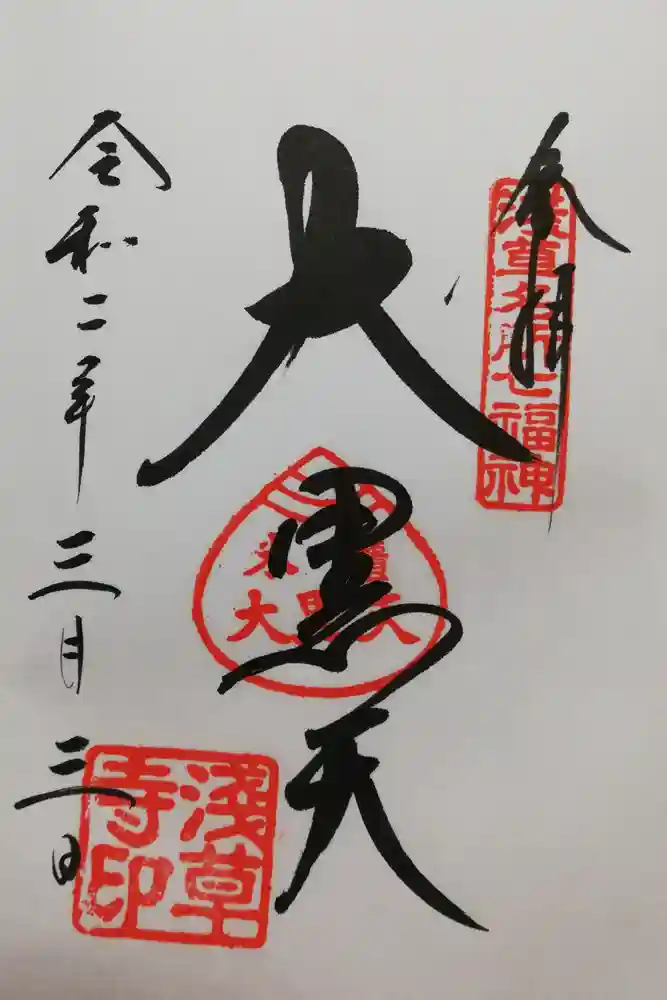 奉拝
浅草名所七福神
大黒天
米びつ大黒天
令和二年三月三日
浅草
寺印